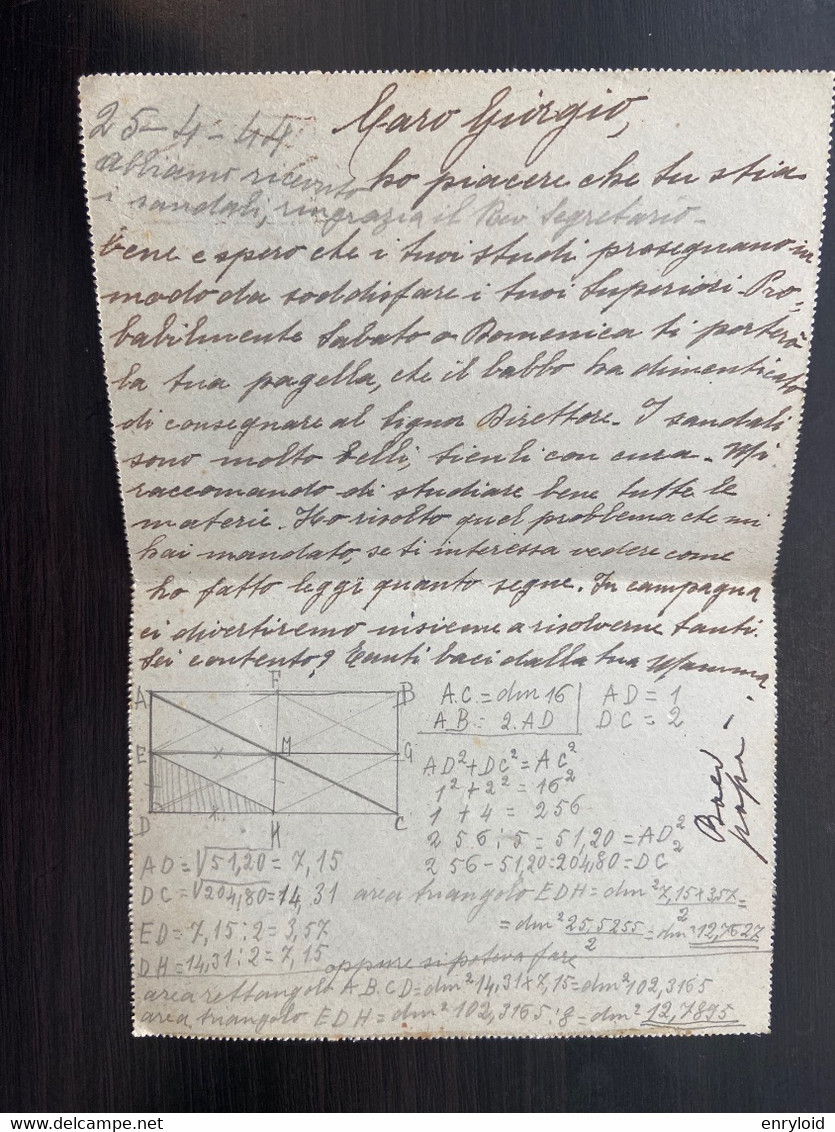 25-4-44
Caro Giorgio,
abbiamo ricevuto
i sandali, ringrazia il Rev Segretario-
ho piacere che tu stia
bene e spero che i tuoi studi proseguano in
modo da soddisfare i tuoi Superiori. Pro-
babilmente Sabato o Domenica ti porterò
la tua pagella, che il babbo ha dimenticato
di consegnare al Signor Direttore. I sandali
sono molto belli, tienli con cura. Mi
raccomando di studiare bene tutte le
materie. Ho risolto quel problema che mi
hai mandato, se ti interessa vedere come
ho fatto leggi quanto segue. In campagna
ci divertiremo insieme a risolverne tanti.
Sei contento? Tanti baci dalla tua Mamma
Baci
papà
A F B
E M G
D H C
A.C. = dm 16 AD = 1
A.B = 2.AD DC = 2
AD²+DC² = AC²
1²+2² = 16²
1+4 = 256
256:5 = 51,20 = AD²
256-51,20=204,80=DC²
AD=√51,20 = 7,15
DC=√204,80=14,31
ED=7,15:2=3,57
DH=14,31:2=7,15
area triangolo EDH = dm² 7,15×3,57/2=
=dm² 25,5255/2=dm² 12,7627
oppure si poteva fare
area rettangolo A.B.C.D=dm² 14,31×7,15=dm² 102,3165
area triangolo EDH=dm² 102,3165:8=dm² 12,7895
delcampe.net
enryloid